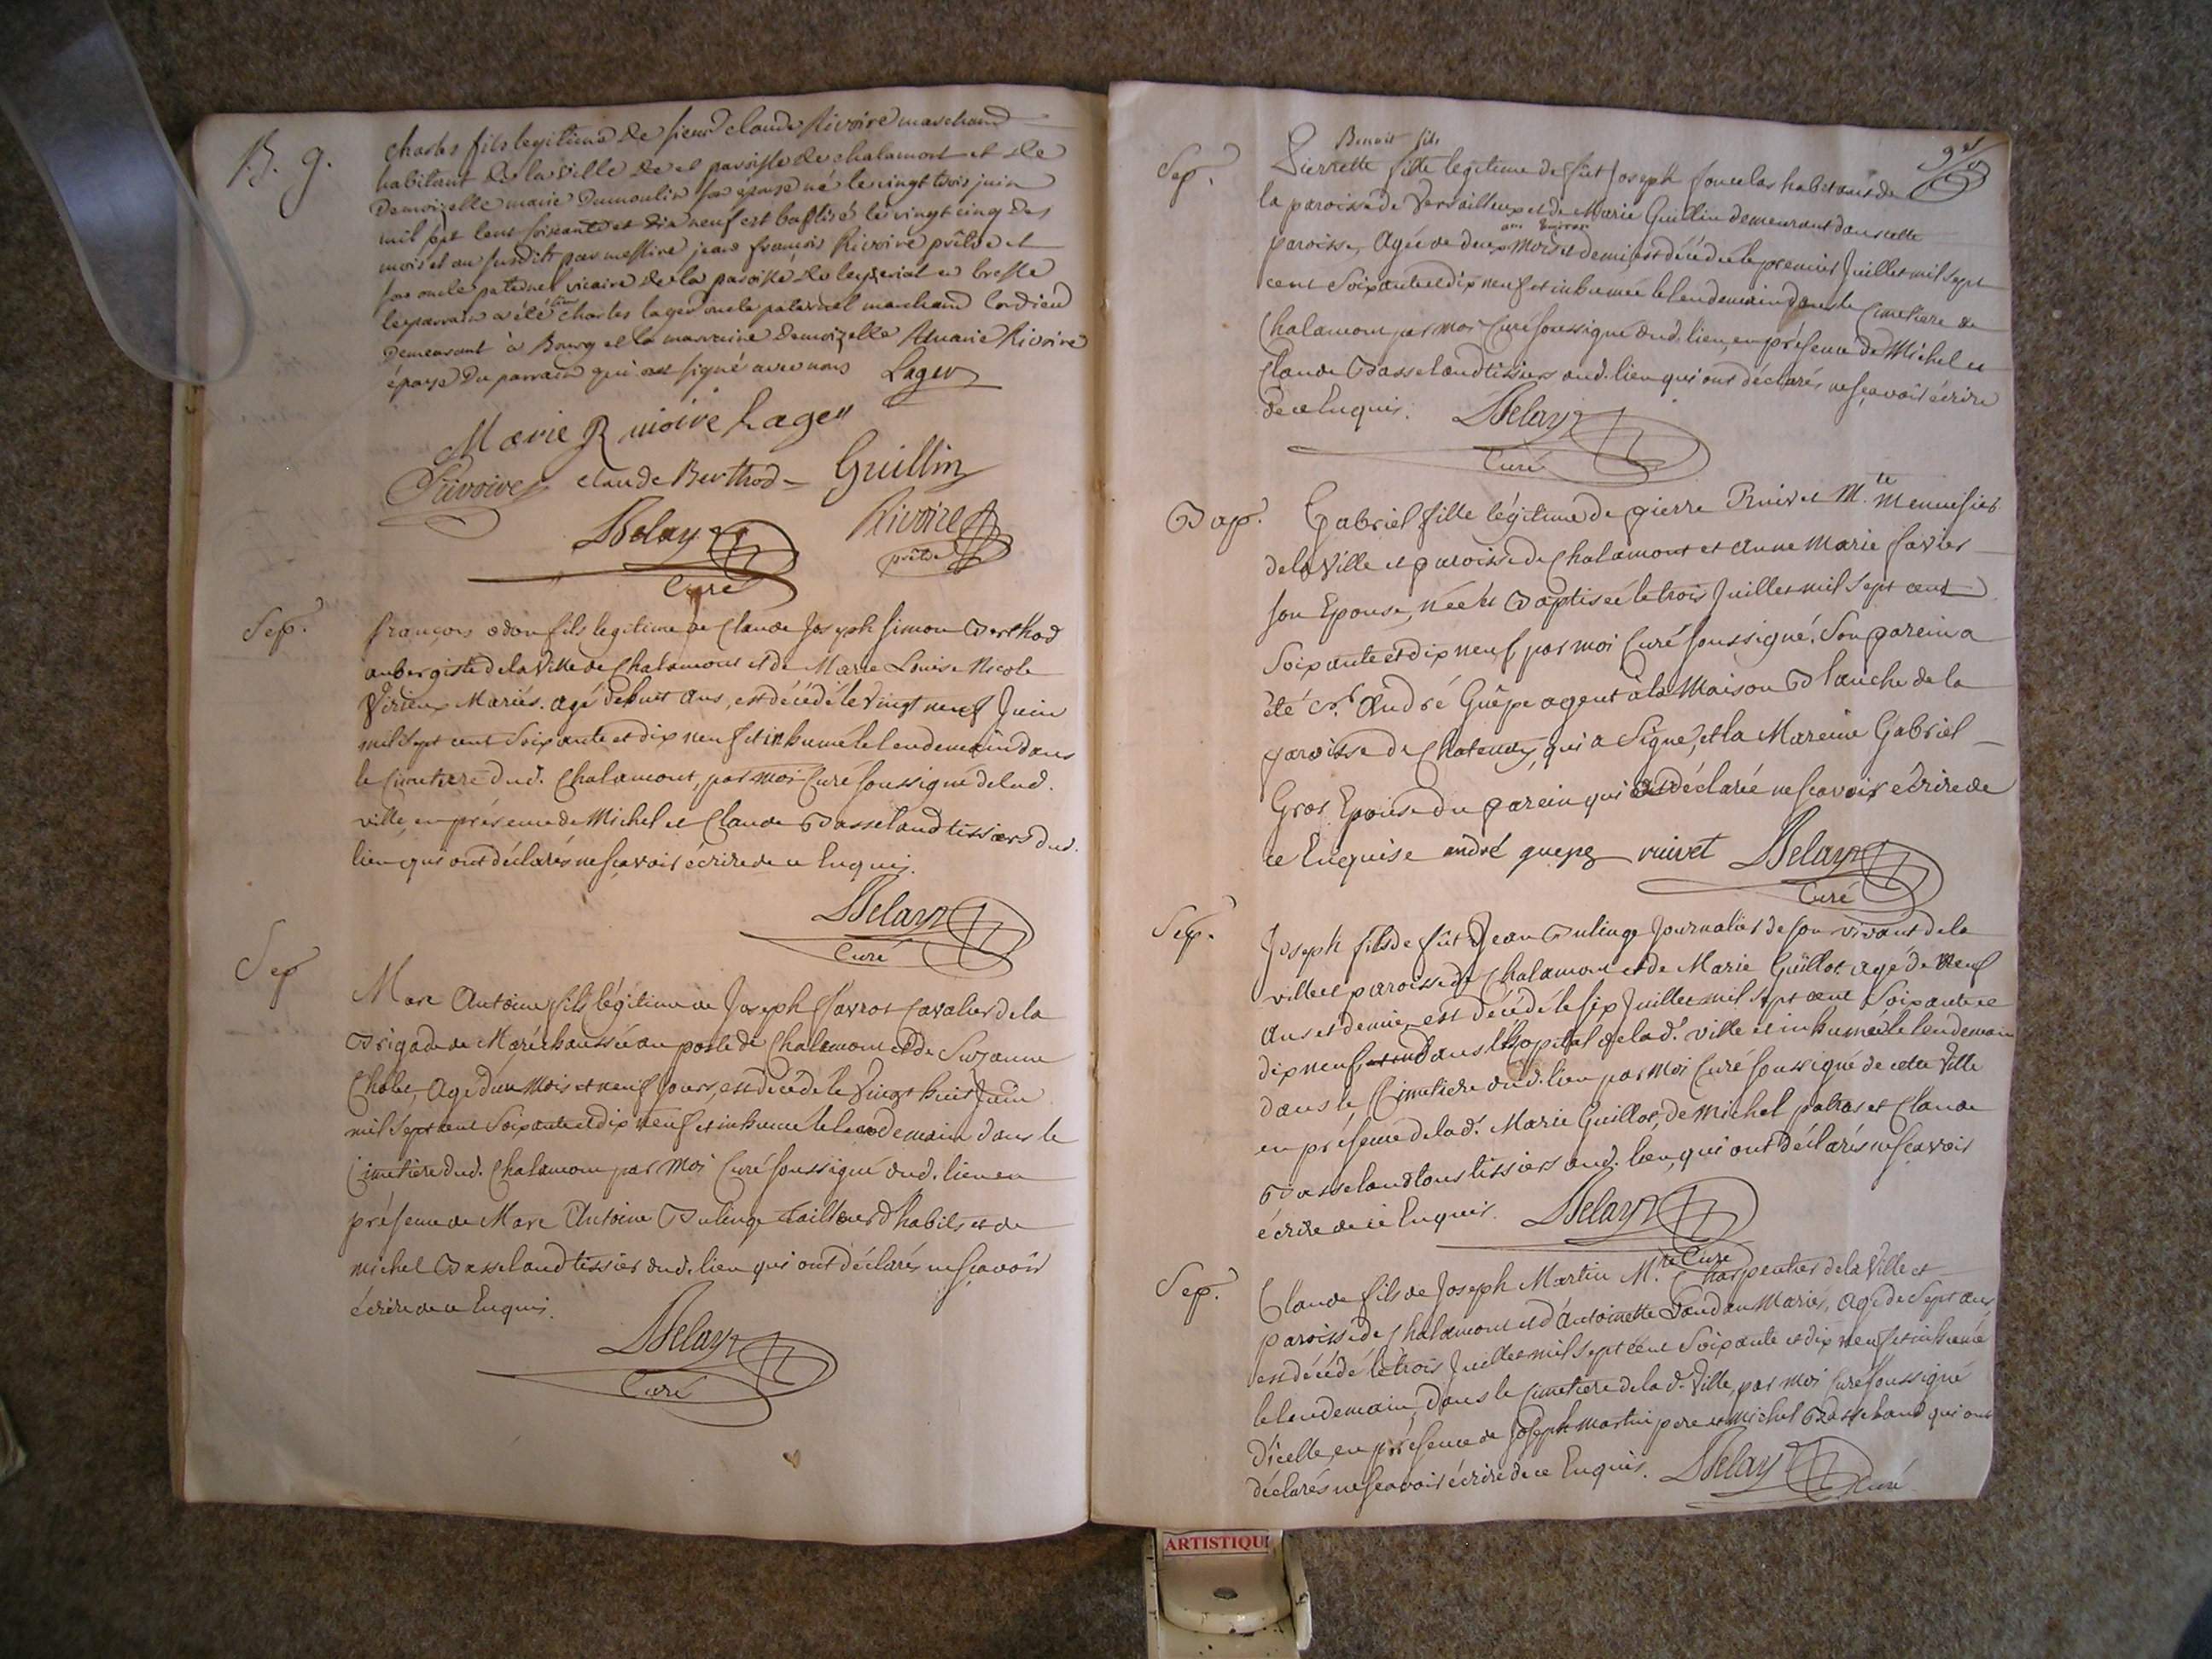 B. g.
charles fils legitime de sieur claude Rivoire marchand
habitant de la ville de et paroisse de chalamont et de
Demoizelle marie Dumoulin son épouse né le vingt trois juin
mil sept cent soixante et dix neuf est baptisé le vingt cinq des
mois et an susdits par messire jean françois Rivoire prêtre et
son oncle paternel vicaire de la paroisse de en bresse
le parrain a été sieur charles lager oncle paternel marchand
Demeurant à Bourg et la marraine Demoizelle Marie Rivoire
épouse du parrain qui ont signé avec nous Lager
Marie Rivoire Lager
Rivoire claude Berthod Guillin
Delay Rivoire
curé prêtre
Sep.
françois odon fils legitime de Claude Joseph Simon Berthod
aubergiste de la Ville de Chalamont et de Marie Louise Nicole
Virieux Mariés. agé de huit ans, est décédé le Vingt neuf Juin
mil sept cent Soixante et dix neuf et inhumé le lendemain dans
le Cimetiere dud. Chalamont, par moi Curé soussigné de lad.
ville, en présence de Michel et Claude Basseland tissiers dud.
lieu qui ont déclarés ne sçavoir écrire de ce Enquis.
Delay
Curé
Sep
Marc Antoine fils légitime de Joseph Favrot Cavalier de la
Brigade de Maréchaussée au poste de Chalamont et de Suzanne
Chabe, Agé d'un Mois et neuf Jours, est décédé le Vingt huit Juin
mil Sept cent Soixante et dix neuf et inhumé le lendemain dans le
Cimetiere dud. Chalamont par Moi Curé soussigné dud. lieu en
présence de Marc Antoine Bulinge tailleur d'habits et de
michel Basseland tissier dud. lieu qui ont déclarés ne sçavoir
écrire de ce Enquis.
Delay
Curé
Sep.
Benoit fils
Pierrette fille legitime de fût Joseph habitant de
la paroisse de Versailleux et de Marie Guillin demeurant dans cette
ans Environ
paroisse, Agée de deux Mois et demi, est décédée le premier Juillet mil sept
cent Soixante et dix neuf et inhumée le lendemain dans le Cimetiere de
Chalamont par moi Curé soussigné dud. lieu, en présence de Michel et
Claude Basseland tissiers aud. lieu qui ont déclarés ne sçavoir écrire
de ce Enquis. Delay
Curé
Bap.
Gabriel fille légitime de pierre Ruivet M.te Menuisier
de la Ville et paroisse de Chalamont et Anne Marie favier
son Epouse, née et Baptisée le trois Juillet mil Sept cent
Soixante et dix neuf par moi Curé soussigné. Son parein a
été Sr. André Guêpe agent à la Maison Blanche de la
paroisse de Chatenay, qui a Signé, et la Mareine Gabriel
Gros Epouse du parein qui a déclarée ne sçavoir écrire de
ce Enquise andré guepe ruivet Delay
Curé
Sep.
Joseph fils de fût Jean Bulinge Journalier de son vivant de la
ville et paroisse de Chalamont et de Marie Guillot agé de Neuf
Ans et demie, est décédé le six Juillet mil sept cent Soixante et
dix neuf dans l'Hopital de lad. ville et inhumé le lendemain
dans le Cimetiere dud. lieu par moi Curé soussigné de cette Ville
en présence de lad. Marie Guillot, de Michel patras et Claude
Basseland tous tissiers aud. lieu, qui ont déclarés ne sçavoir
écrire de ce Enquis. Delay
Curé
Sep.
Claude fils de Joseph Martin M.re Charpentier de la Ville et
paroisse de Chalamont et d'Antoinette Mariés, Agé de Sept ans,
est décédé le trois Juillet mil Sept cent Soixante et dix neuf et inhumé
le lendemain, dans le Cimetiere de la d. Ville, par moi Curé soussigné
d'icelle, en présence de Joseph Martin pere et Michel Basseland qui ont
déclarés ne sçavoir écrire de ce Enquis. Delay
Curé
ARTISTIQU